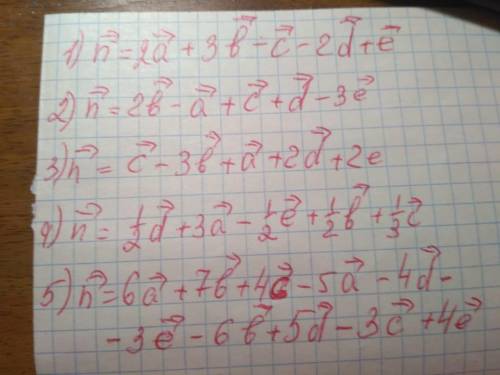 1) n⃗ = 2a⃗ + 3b⃗ - c⃗ - 2d⃗ + e⃗
2) n⃗ = 2b⃗ - a⃗ + c⃗ + d⃗ - 3e⃗
3) n⃗ = c⃗ - 3b⃗ + a⃗ + 2d⃗ + 2e
4) n⃗ = 1/2 d⃗ + 3a⃗ - 1/2 e⃗ + 1/2 b⃗ + 1/3 c⃗
5) n⃗ = 6a⃗ + 7b⃗ + 4c⃗ - 5a⃗ - 4d⃗ -
- 3e⃗ - 6b⃗ + 5d⃗ - 3c⃗ + 4e⃗